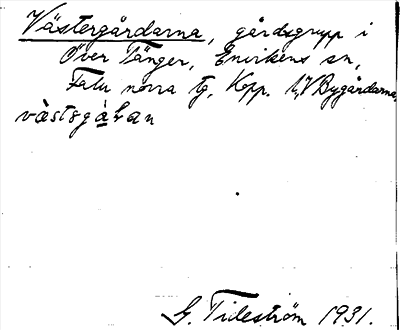 Västergårdarna, gårdsgrupp i
Över Tänger, Envikens sn,
Falu norra tg, Kopp. l, V Bygårdarna,
G. Tideström 1931.